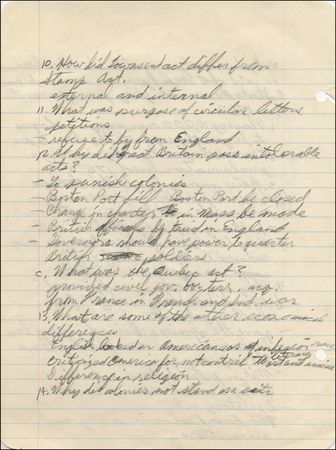 10. How did Townsend act differ from
Stamp Act.
external and internal
11. What was purpose of circular letters
petitions
- refuse to by from England
12. Why did great Britain pass intolerable
acts?
- To punish colonies
- Boston Port fill Boston Port be closed
- Change in charter in Mass be made
- British by tried in England
- Governors should have power to quarter
British soldiers
c. What was the Quebec act?
provided civil gov. for terr. acq.
from France in French and Ind. war
13. What are some of the other economical
differences
English looked on Americans as of inferior race
Critizized America for not contrib. to and science
Difference in religion
14. Why did colonies not stand as a unit